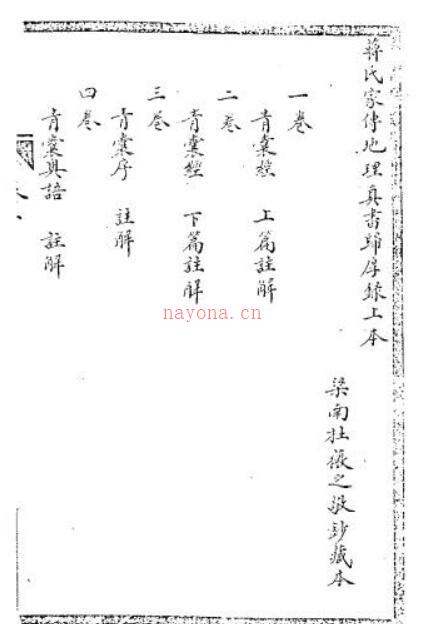 蔣氏家傳地理真書歸厚錄上本
梁南壯張之敬鈔藏本
一卷
青囊經 上篇註解
二卷
青囊經 下篇註解
三卷
青囊序 註解
四卷
青囊奧語 註解
nayona.cn